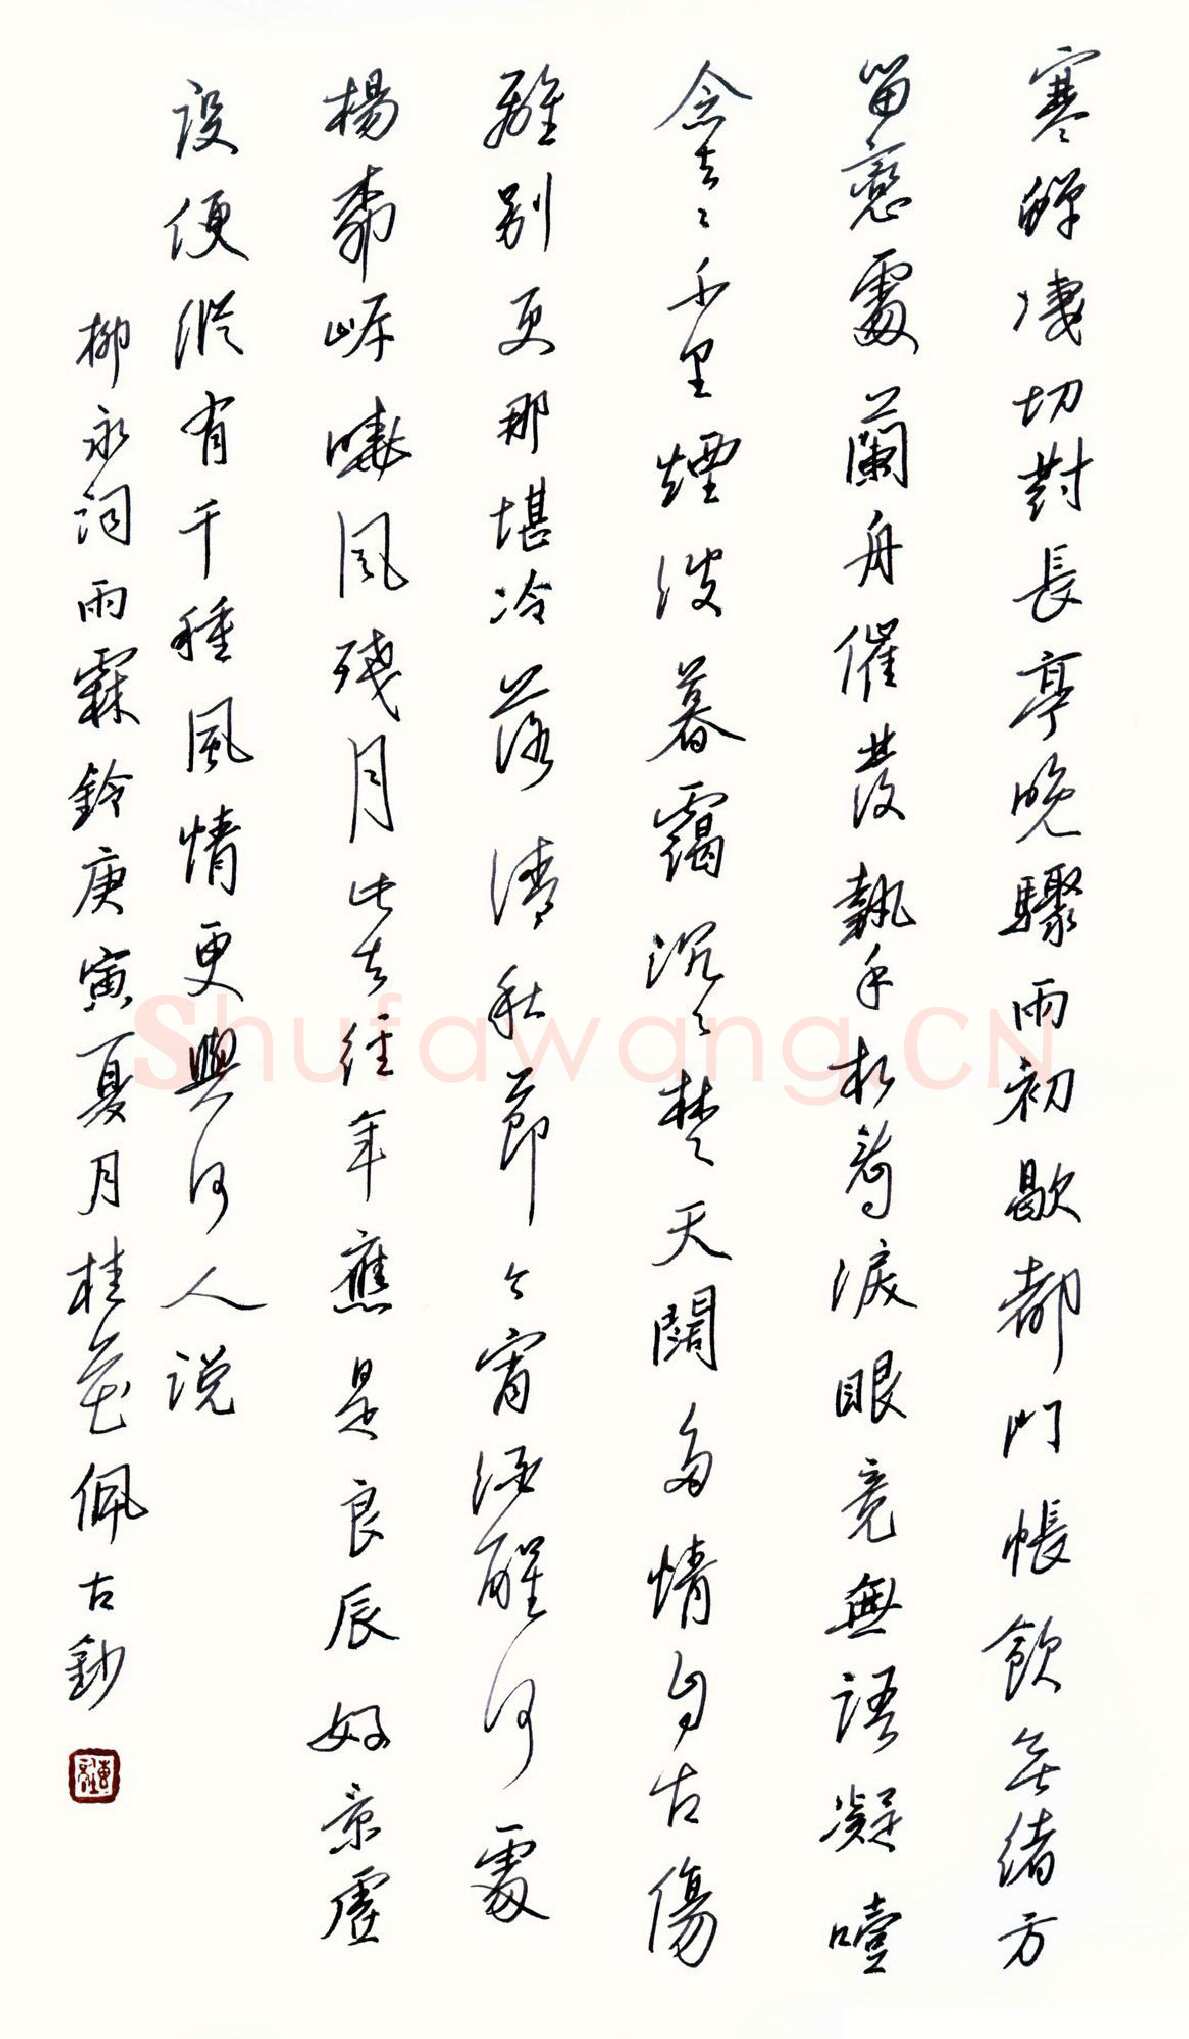 寒蟬凄切對長亭晚驟雨初歇都門帳飲無緒方
留戀處蘭舟催發執手相看淚眼竟無語凝噎
念去〻千里煙波暮靄沉〻楚天闊多情自古傷
離別更那堪冷落清秋節今宵酒醒何處
楊柳岸曉風殘月此去經年應是良辰好景虛
設便縱有千種風情更與何人說
柳永詞雨霖鈴庚寅夏月桂花佩古鈔
Shufawang.CN